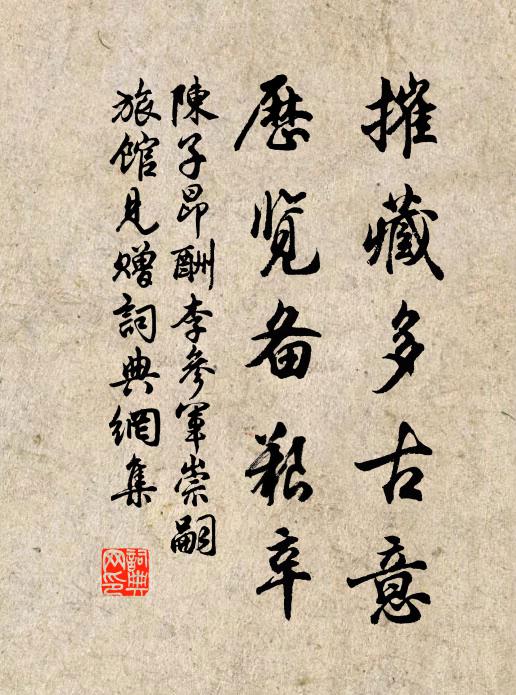 摧藏多古意
歷覽备艱辛
陳子昂酬李參軍崇嗣
旅館見贈詞典網集
詞典网印